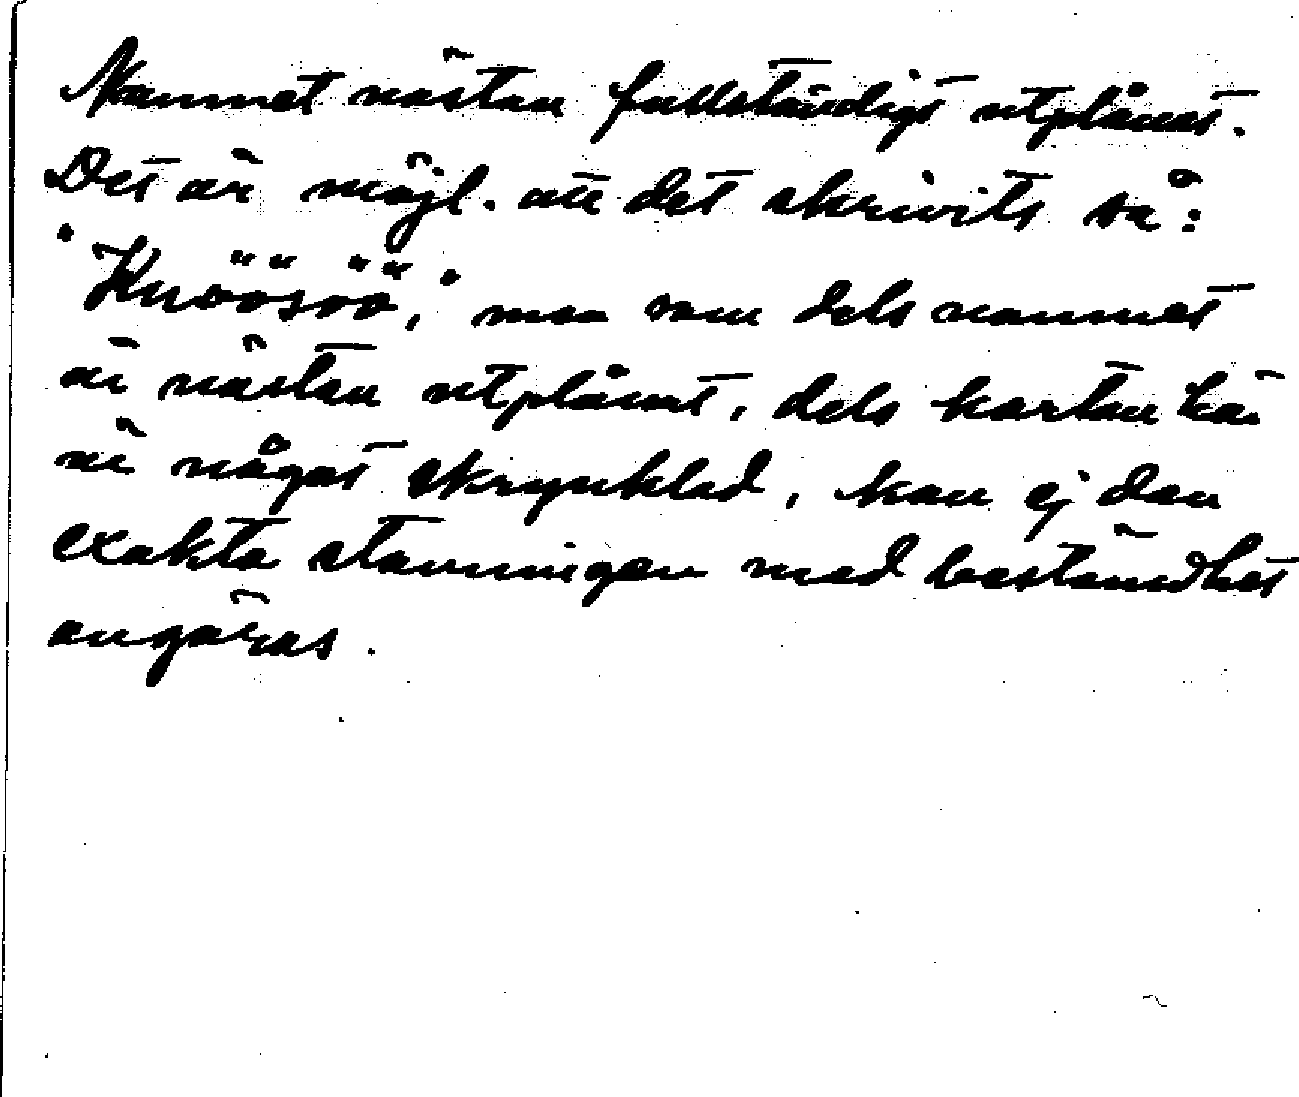 Namnet nästan fullständigt utplånat.
Det är möjl. att det skrivits så:
"Knöösöö," men som dels namnet
är nästan utplånat, dels kartan här
är något skrynklad, kan ej den
exakta stavningen med bestämdhet
angöras.